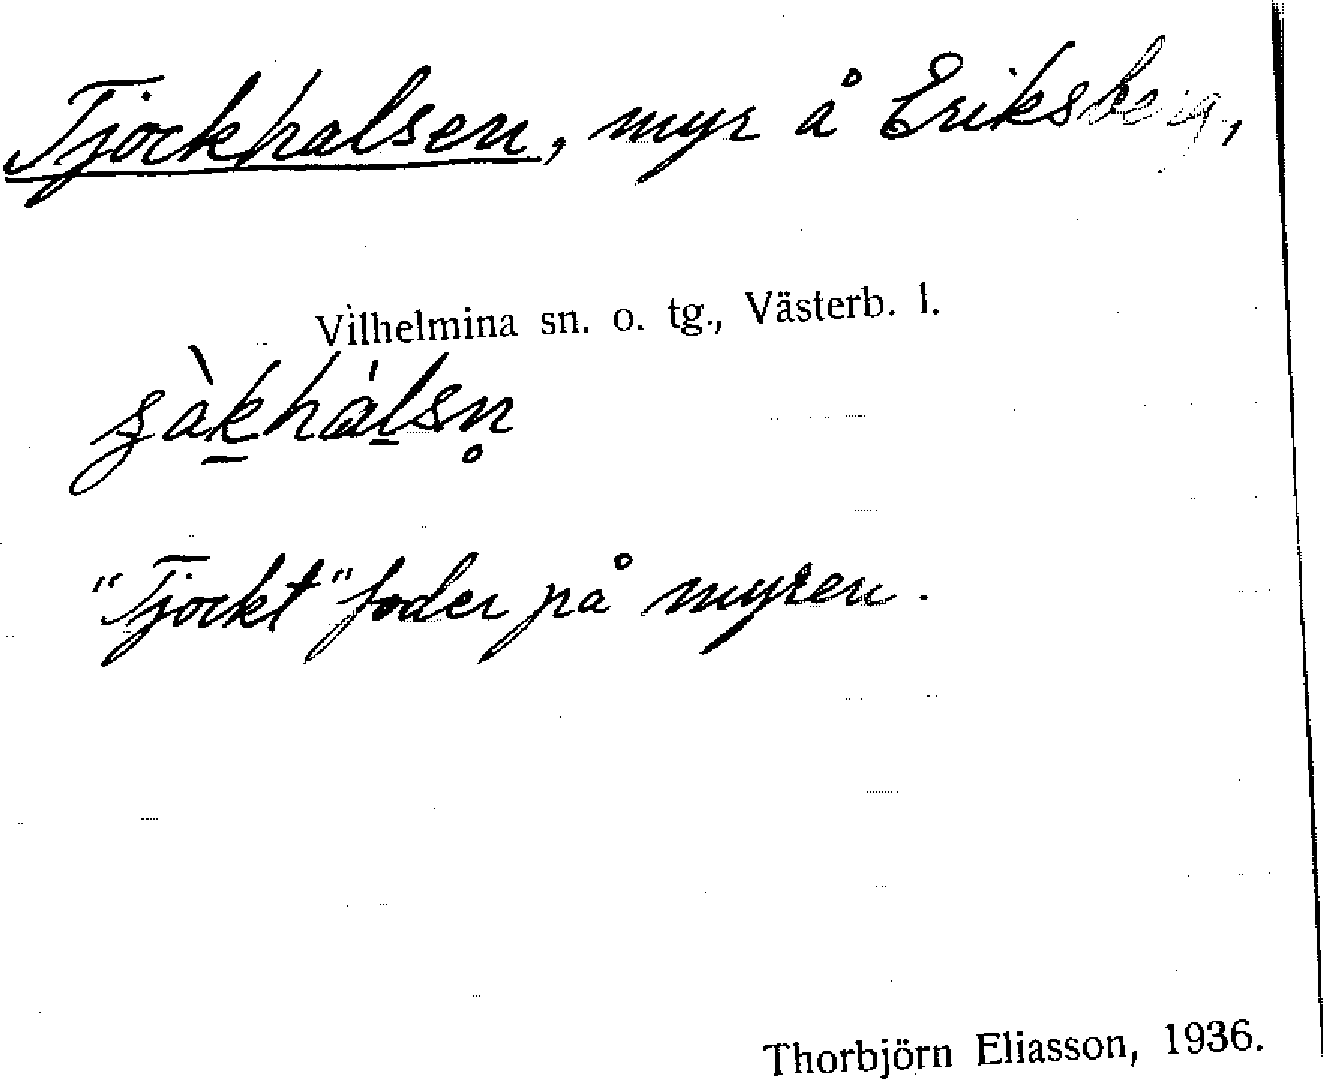 Tjockhalsen, myr å Eriksberg,
Vilhelmina sn. o. tg., Västerb. l.
"Tjockt" foder på myren.
Thorbjörn Eliasson, 1936.